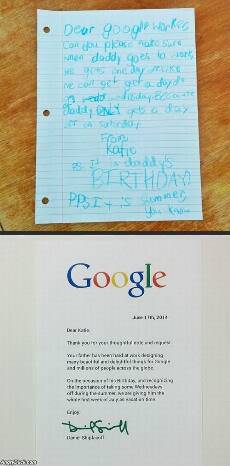 Dear google worker,
Can you please make sure
when daddy goes to work,
he gets one day off. like
he can get get a day off
on wednesday. Because
daddy ONLY gets a day
off on saturday.
From,
Katie
P.S. It is daddy's
BIRTHDAY!
PPS. It is summer,
you know
Google
June 17th, 2014
Dear Katie,
Thank you for your thoughtful note and request.
Your father has been hard at work designing
many beautiful and delightful things for Google
and millions of people across the globe.
On the occasion of his Birthday, and recognizing
the importance of taking some Wednesdays
off during the summer, we are giving him the
whole first week of July as vacation time.
Enjoy!
Daniel Shiplacoff